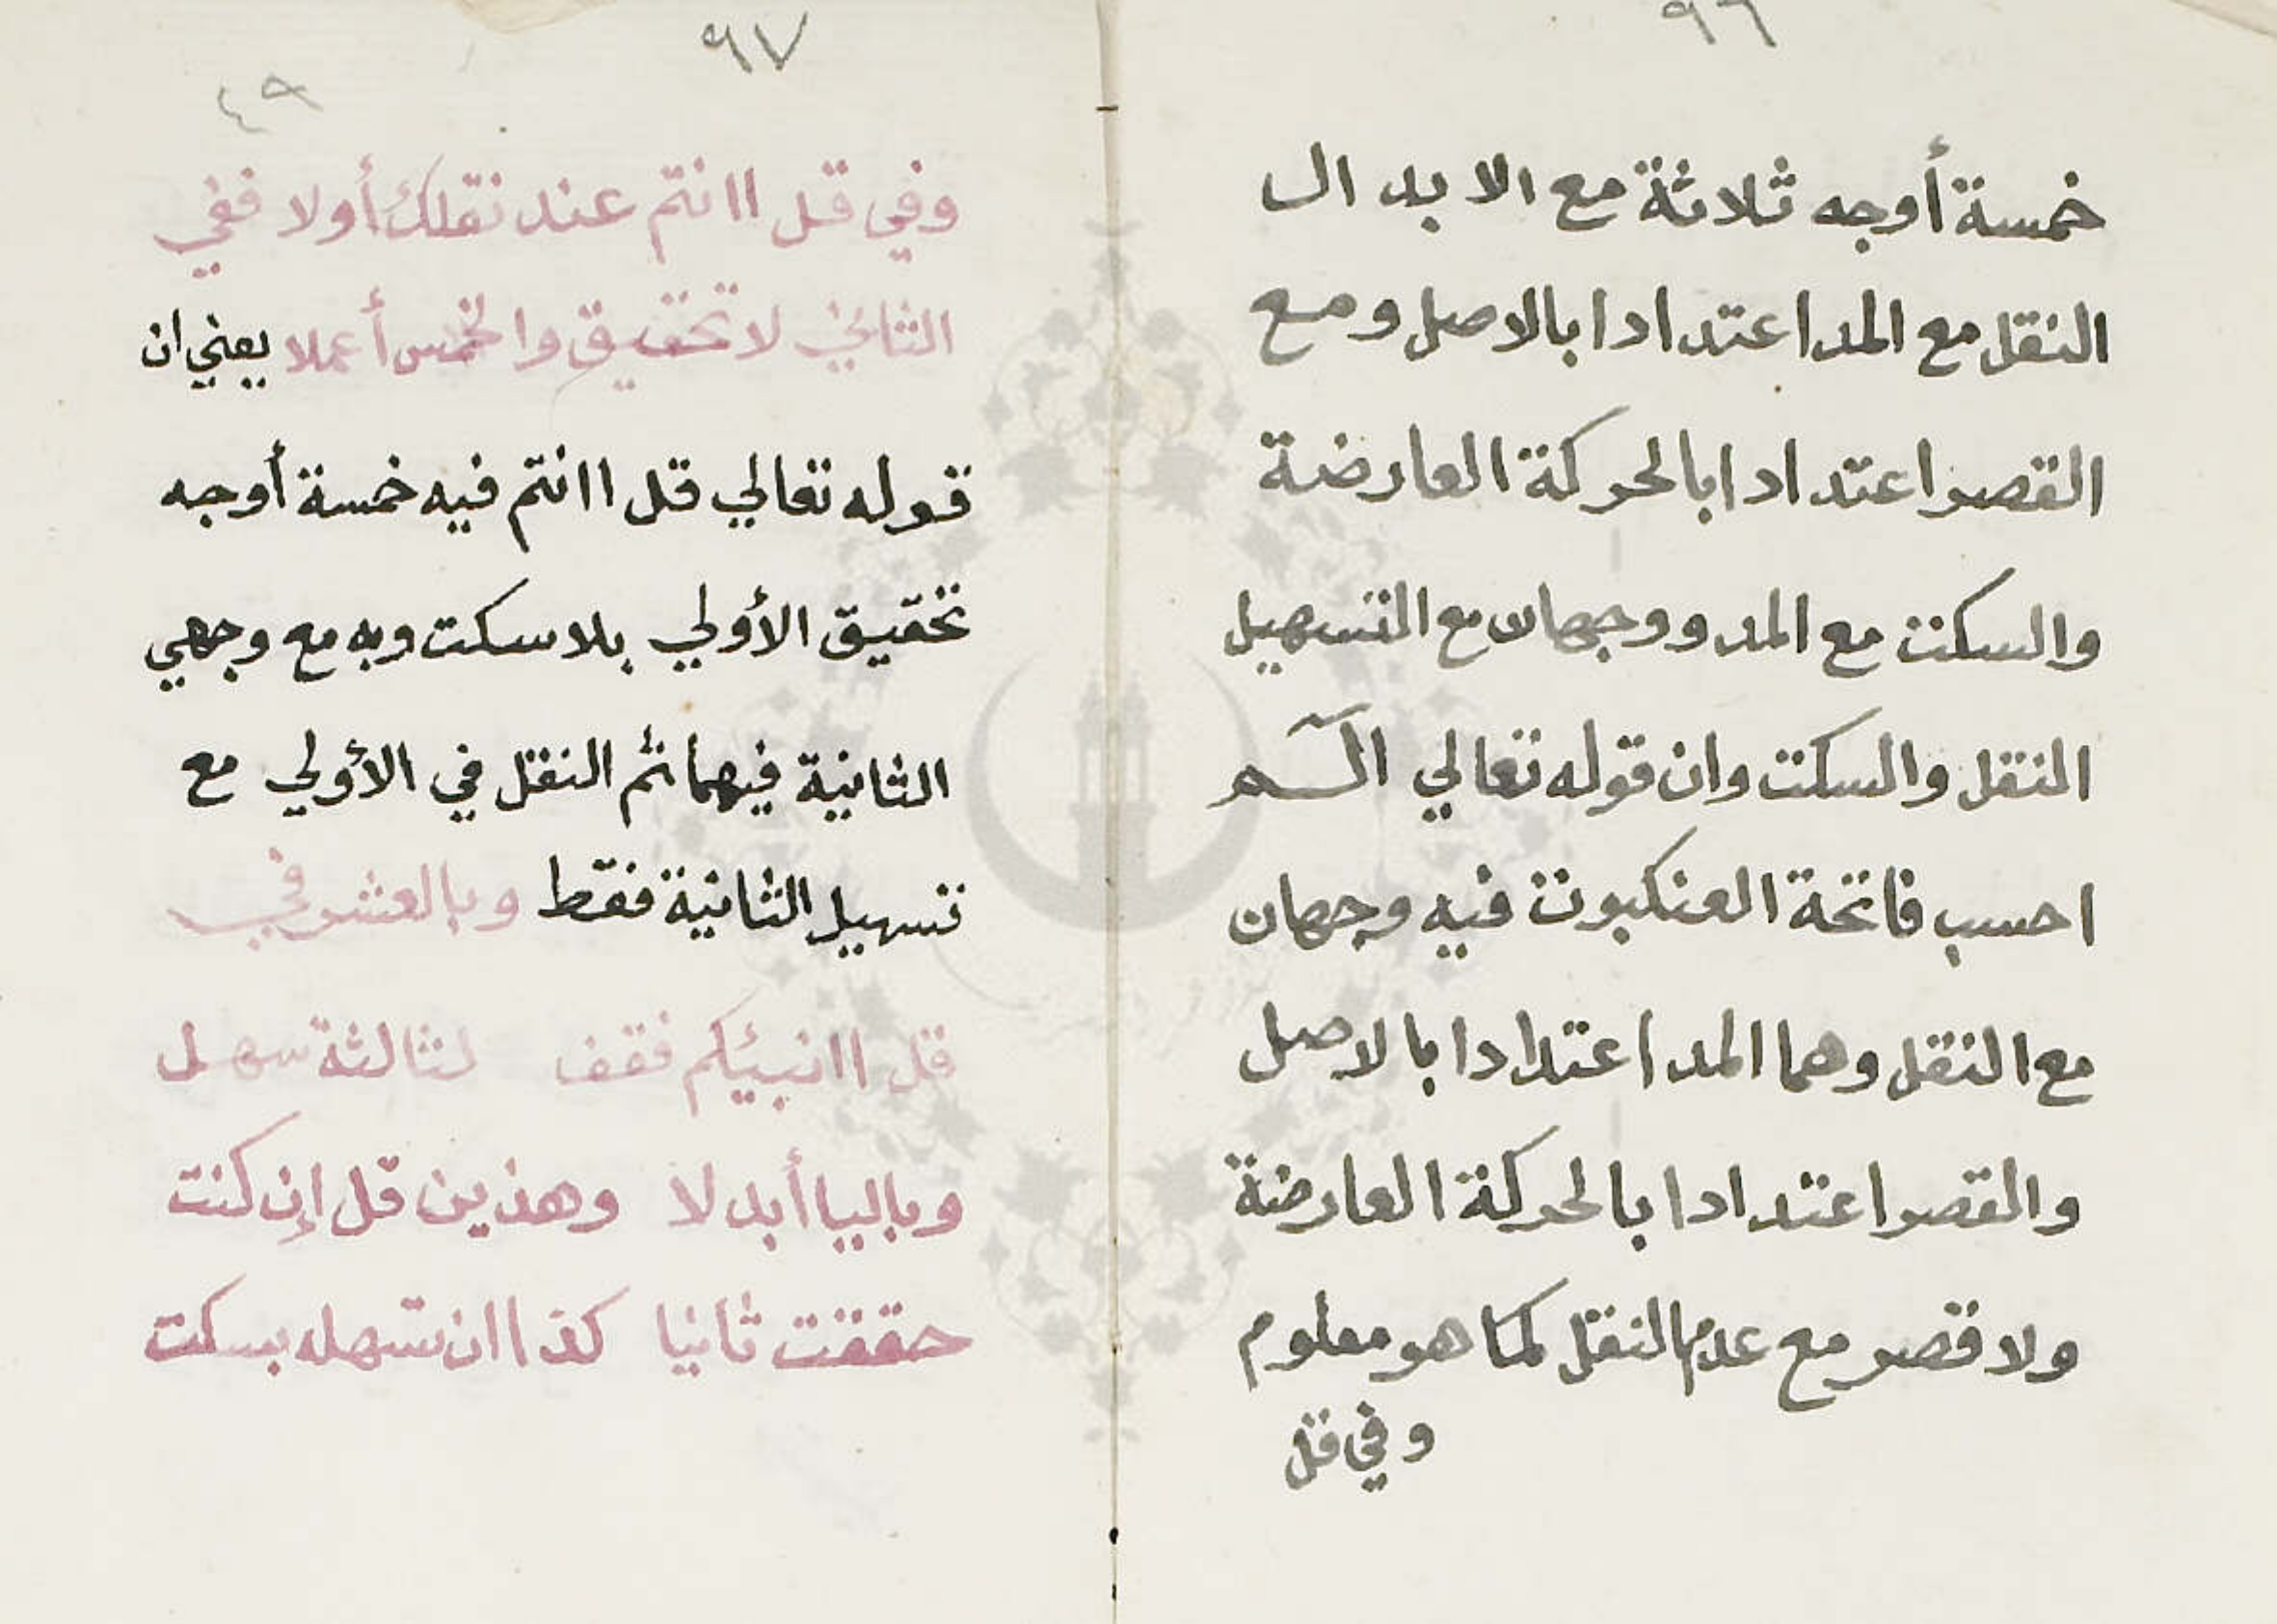 ٩٦
خمسة أوجه ثلاثة مع الابدال
النقل مع المد اعتدادا بالاصل ومع
القصر اعتدادا بالحركة العارضة
والسكت مع المد ووجهان مع التسهيل
النقل والسكت وان قوله تعالي الٓـم
احسب فاتحة العنكبوت فيه وجهان
مع النقل وهما المد اعتدادا بالاصل
والقصر اعتدادا بالحركة العارضة
ولا قصر مع عدم النقل كما هو معلوم
وفي قل
٩٧
٤٩
وفي قل اانتم عند نقلك أولا ففي
الثاني لا تحقيق والخمس أعملا يعني ان
قوله تعالي قل اانتم فيه خمسة أوجه
تحقيق الأولي بلا سكت وبه مع وجهي
الثانية فيهما ثم النقل في الأولي مع
تسهيل الثانية فقط وبالعشر في
قل اانبيئكم فقف لثالثة سهل
وباليا أبدلا وهذين قل إن كنت
حققت ثانيا كذا ان تسهله بسكت